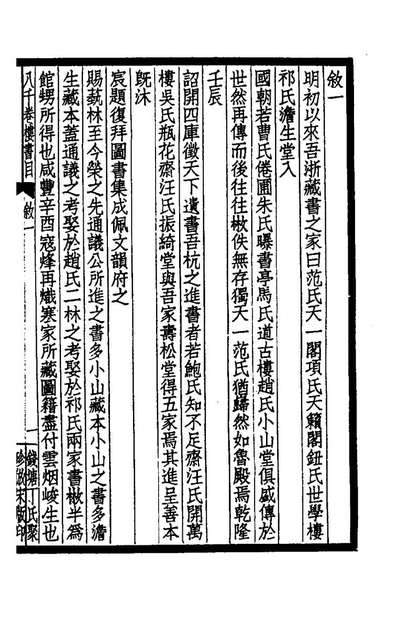 敘一
明初以來吾浙藏書之家曰范氏天一閣項氏天籟閣鈕氏世學樓
祁氏澹生堂入
國朝若曹氏倦圃朱氏曝書亭馬氏道古樓趙氏小山堂俱盛傳於
世然再傳而後往往散佚無存獨天一范氏猶巋然如魯殿焉乾隆
壬辰
詔開四庫徵天下遺書吾杭之進書者若鮑氏知不足齋汪氏開萬
樓吳氏瓶花齋汪氏振綺堂與吾家壽松堂得五家焉其進呈善本
旣沐
宸題復拜圖書集成佩文韻府之
賜蓺林至今榮之先通議公所進之書多小山藏本小山之書多澹
生藏本蓋通議之考娶於趙氏二林之考娶於祁氏兩家書散半為
館甥所得也咸豐辛酉寇烽再熾寒家所藏圖籍盡付雲烟峻生也
八千卷樓書目
敘一
一
錢塘丁氏聚
珍倣宋版印